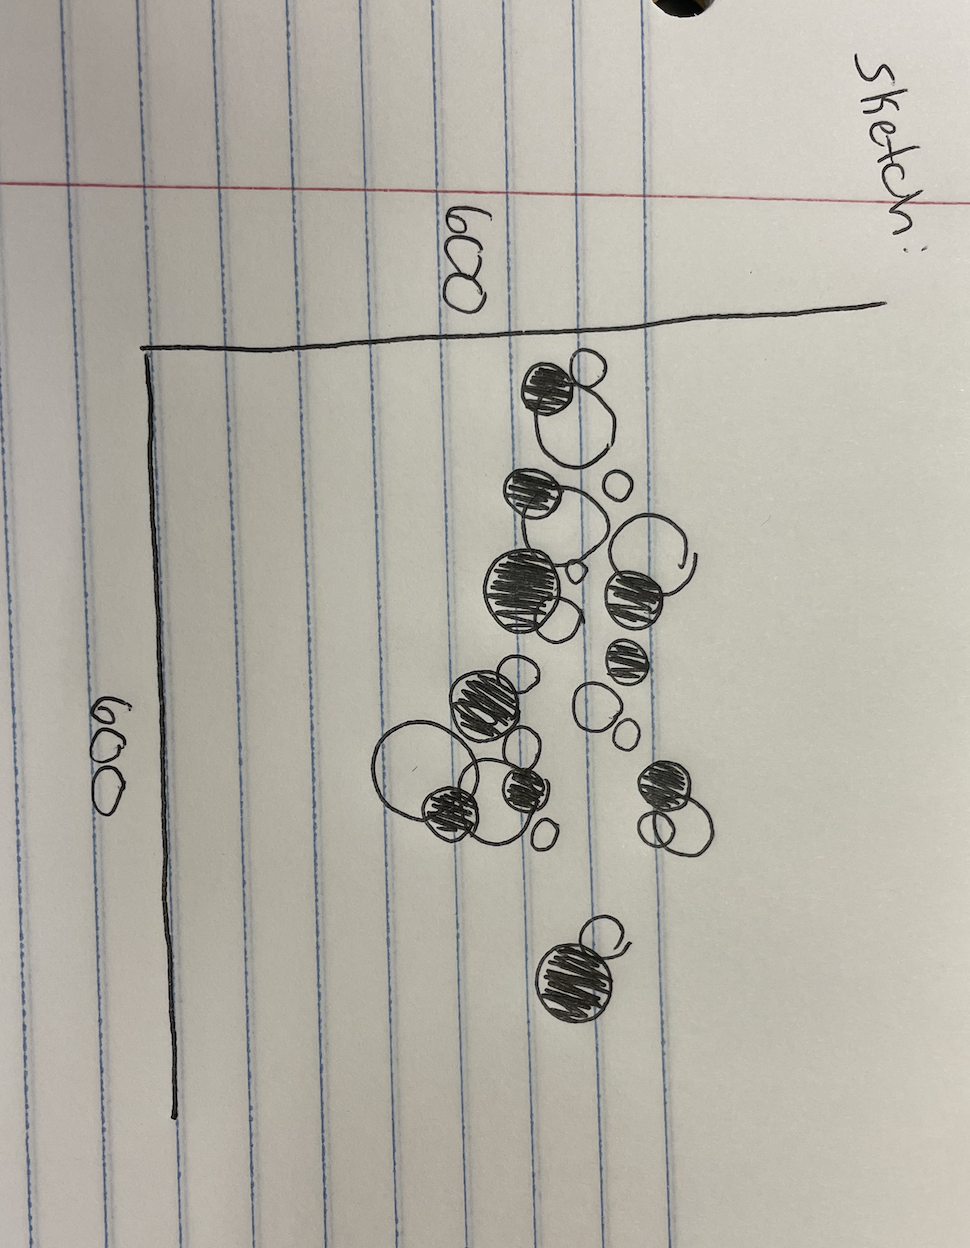 Sketch:
600
600